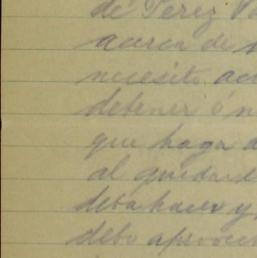 de Perez Va
acerca de
necesito ac
detener ó n
que haga a
al guardar
deba hacer y
debo aprovec